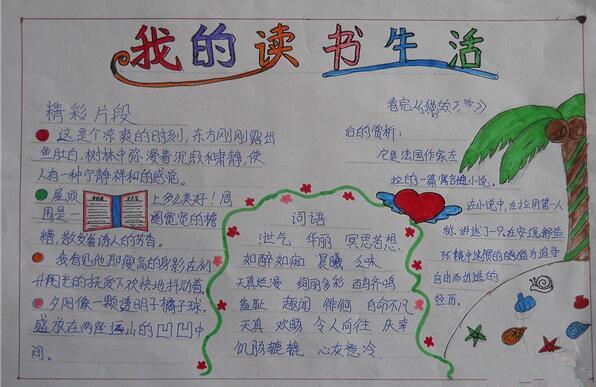 我的读书生活
精彩片段
这是个凉爽的时刻,东方刚刚露出
鱼肚白,树林中弥漫着沉寂和肃静,使
人有一种宁静祥和的感觉。
屋顶上多么美好!周
围是一圈宽宽的
糟,散发着诱人的芳香。
我看见他那瘦高的身影在初
升阳光的抚爱下欢快地抖动着
夕阳像一颗透明子橘子球,
盛放在两座远山的凹凹中
间。
词语
泄气 华丽 冥思苦想
如醉如痴 晨曦 乏味
天真烂漫 绚丽多彩 百鸟齐鸣
羞耻 趣闻 徘徊 自命不凡
天真 欢畅 令人向往 庆幸
饥肠辘辘 心灰意冷
看完《猫的天堂》
后的赏析:
它是法国作家左
拉的一篇寓言性小说。
在小说中,左拉用第一人
称,讲述了一只在安逸舒适
环境中
的猫为追寻
自由而出逃的
经历。